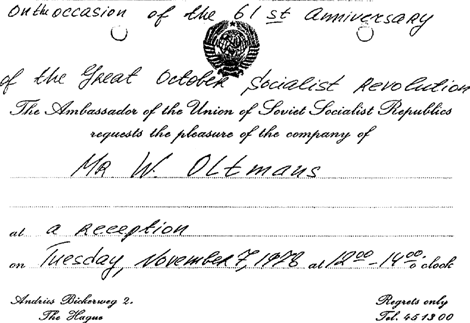 On the occasion of the 61 st anniversary
of the Great October Socialist Revolution
The Ambassador of the Union of Soviet Socialist Republics
requests the pleasure of the company of
Mr W. Oltmans
at a reception
on Tuesday, November 7, 1978 at 12⁰⁰ - 14⁰⁰ o'clock
Andries Bickerweg 2.
The Hague
Regrets only
Tel. 45 13 00